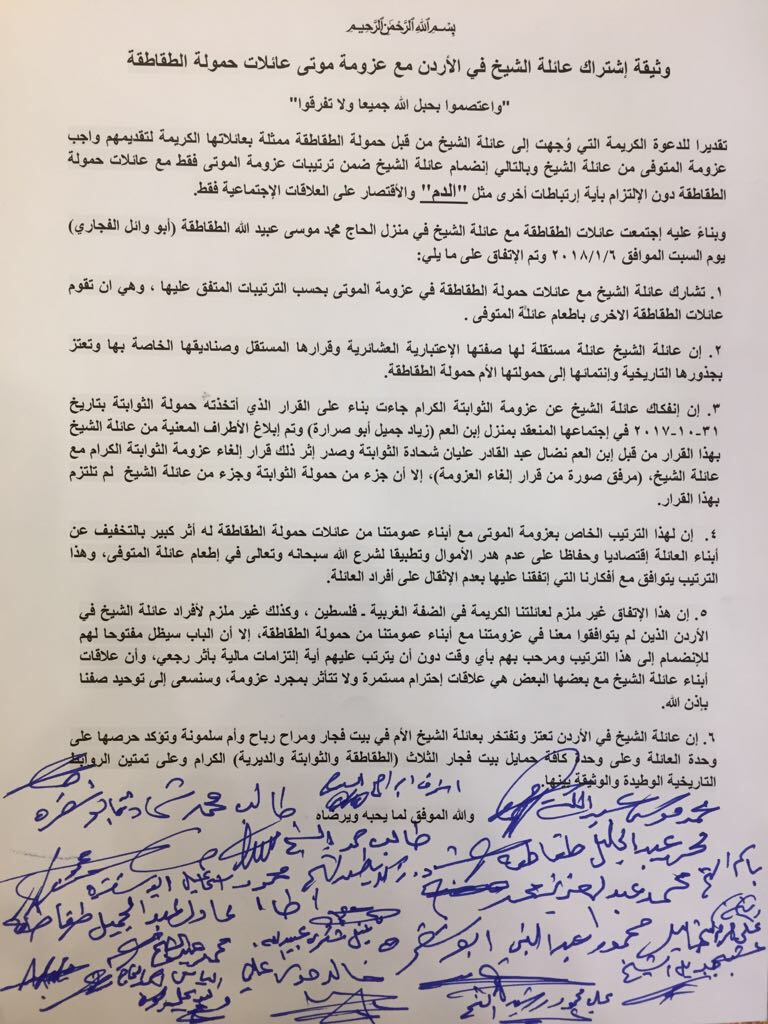 بسم الله الرحمن الرحيم
وثيقة إشتراك عائلة الشيخ في الأردن مع عزومة موتى عائلات حمولة الطقاطقة
"واعتصموا بحبل الله جميعا ولا تفرقوا"
تقديرا للدعوة الكريمة التي وُجهت إلى عائلة الشيخ من قبل حمولة الطقاطقة ممثلة بعائلاتها الكريمة لتقديمهم واجب
عزومة المتوفى من عائلة الشيخ وبالتالي إنضمام عائلة الشيخ ضمن ترتيبات عزومة الموتى فقط مع عائلات حمولة
الطقاطقة دون الإلتزام بأية إرتباطات أخرى مثل "الدم" والأقتصار على العلاقات الإجتماعية فقط.
وبناءً عليه إجتمعت عائلات الطقاطقة مع عائلة الشيخ في منزل الحاج محمد موسى عبيد الله الطقاطقة (أبو وائل الفجاري)
يوم السبت الموافق ٢٠١٨/١/٦ وتم الإتفاق على ما يلي:
١. تشارك عائلة الشيخ مع عائلات حمولة الطقاطقة في عزومة الموتى بحسب الترتيبات المتفق عليها ، وهي ان تقوم
عائلات الطقاطقة الاخرى باطعام عائلة المتوفى .
٢. إن عائلة الشيخ عائلة مستقلة لها صفتها الإعتبارية العشائرية وقرارها المستقل وصناديقها الخاصة بها وتعتز
بجذورها التاريخية وإنتمائها إلى حمولتها الأم حمولة الطقاطقة.
٣. إن إنفكاك عائلة الشيخ عن عزومة الثوابتة الكرام جاءت بناء على القرار الذي أتخذته حمولة الثوابتة بتاريخ
٣١-١٠-٢٠١٧ في إجتماعها المنعقد بمنزل إبن العم (زياد جميل أبو صرارة) وتم إبلاغ الأطراف المعنية من عائلة الشيخ
بهذا القرار من قبل إبن العم نضال عبد القادر عليان شحادة الثوابتة وصدر إثر ذلك قرار إلغاء عزومة الثوابتة الكرام مع
عائلة الشيخ، (مرفق صورة من قرار إلغاء العزومة)، إلا أن جزء من حمولة الثوابتة وجزء من عائلة الشيخ لم تلتزم
بهذا القرار.
٤. إن لهذا الترتيب الخاص بعزومة الموتى مع أبناء عمومتنا من عائلات حمولة الطقاطقة له أثر كبير بالتخفيف عن
أبناء العائلة إقتصاديا وحفاظا على عدم هدر الأموال وتطبيقا لشرع الله سبحانه وتعالى في إطعام عائلة المتوفى، وهذا
الترتيب يتوافق مع أفكارنا التي إتفقنا عليها بعدم الإثقال على أفراد العائلة.
٥. إن هذا الإتفاق غير ملزم لعائلتنا الكريمة في الضفة الغربية - فلسطين ، وكذلك غير ملزم لأفراد عائلة الشيخ في
الأردن الذين لم يتوافقوا معنا في عزومتنا مع أبناء عمومتنا من حمولة الطقاطقة، إلا أن الباب سيظل مفتوحا لهم
للإنضمام إلى هذا الترتيب ومرحب بهم بأي وقت دون أن يترتب عليهم أية إلتزامات مالية بأثر رجعي، وأن علاقات
أبناء عائلة الشيخ مع بعضها البعض هي علاقات إحترام مستمرة ولا تتأثر بمجرد عزومة، وسنسعى إلى توحيد صفنا
بإذن الله.
٦. إن عائلة الشيخ في الأردن تعتز وتفتخر بعائلة الشيخ الأم في بيت فجار ومراح رباح وأم سلمونة وتؤكد حرصها على
وحدة العائلة وعلى وحدة كافة حمايل بيت فجار الثلاث (الطقاطقة والثوابتة والديرية) الكرام وعلى تمتين الروابط
التاريخية الوطيدة والوثيقة بينها.
والله الموفق لما يحبه ويرضاه
طالب محمد شحادة
طالب حمد الشيخ
محمد عبد الجليل طقاطقة
محمد عبد العزيز محمد
عادل عبد الجليل طقاطقة
محمود عبد النبي ابو
خالد موسى علي
علي محمود رشيد الشيخ